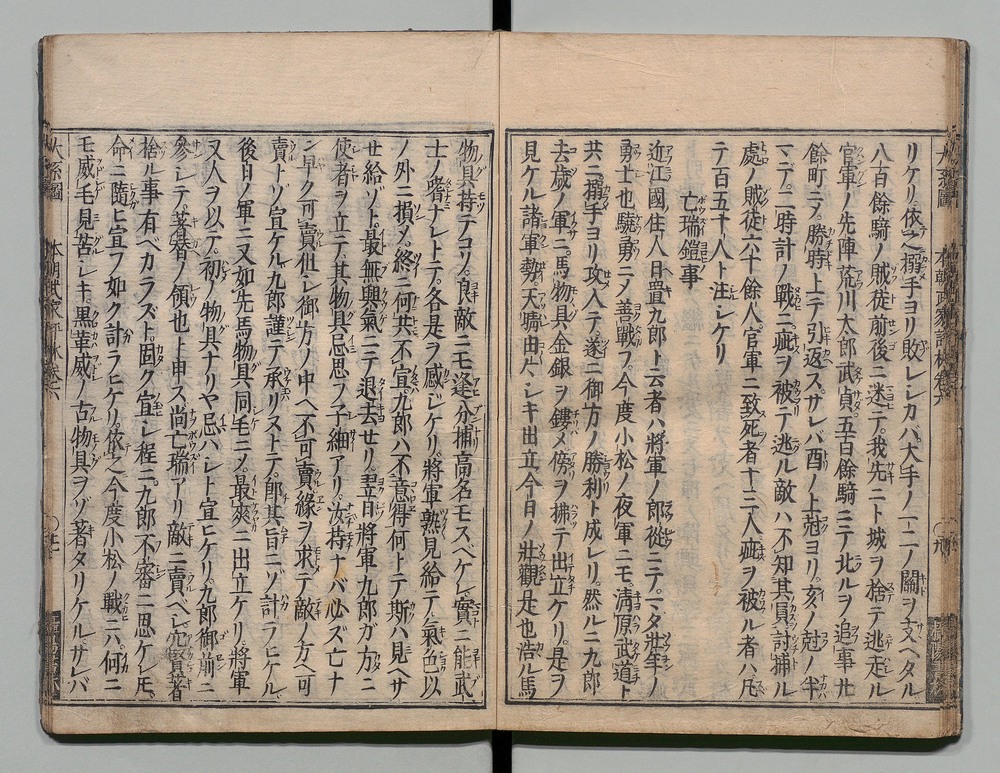 リケリ。依之搦手ヨリ敗レシカバ、大手ノ一二ノ關ヲ支ヘタル
八百餘騎ノ賊徒前後ニ迷テ。我先ニト城ヲ捨テ逃走ル
官軍ノ先陣荒川太郎武貞。五百餘騎ニテ北ルヲ追事廿
餘町ニ〆。勝時上テ引返ス。サレバ酉ノ上尅ヨリ。亥ノ尅ノ半
マデ。二時計ノ戰ニ。疵ヲ被テ逃ル敵ハ不知其員討捕ル
處ノ賊徒六十餘人。官軍ニ致死者十三人。疵ヲ被ル者ハ凡
テ百五十人ト注シケリ
亡瑞鎧事
近江國ノ住人日置九郎ト云者ハ將軍ノ郎從ニテ。一タ壯年ノ
勇士也。驍勇ニ〆善戰フ。今度小松ノ夜軍ニモ。淸原武道ト
共ニ搦手ヨリ攻入テ。遂ニ御方ノ勝利ト成レリ。然ルニ九郎
去歳ノ軍ニ。馬物具金銀ヲ鏤メ傍ヲ拂テ出立ケリ。是ヲ
見ケル諸軍勢。天晴由々シキ出立。今日ノ壯觀是也。浩ル馬
物具持テコリ。良敵ニモ逢。分捕高名モスベケレ。實ニ能武
士ノ嗜ナレトテ。各是ヲ感ジケリ。將軍熟見給テ。氣色以
ノ外ニ損〆。終ニ何共不宣。九郎ハ不意得。何トテ斯ハ見ヘサ
セ給ゾト。最無興氣ニテ退去セリ。翌日將軍九郎ガ方ニ
使者ヲ立テ。其物具忌思フ子細アリ。汝持ナバ必ズ亡ナ
ン。早ク可賣。但シ御方ノ中ヘ不可賣。緣ヲ求テ敵ノ方ヘ可
賣トゾ宣ケル。九郎謹テ承リヌトテ。卽其旨ニゾ計ラヒケル
後日ノ軍ニ又如先馬物具同毛ニ〆。最爽ニ出立ケリ。將軍
又人ヲ以テ。初ノ物具ナリヤ忌ハシト宣ヒケリ。九郎御前ニ
參シテ。著替ノ領也ト申ス。尚亡瑞アリ。敵ニ賣ベシ。
捨ル事有ベカラズト。固ク宣シ程ニ。九郎不審ニ思ケレ𪜈。
命ニ隨ヒ宣フ如ク計ラヒケリ。依之今度小松ノ戰ニハ。何ニ
モ威毛見苦シキ。黑革威ノ古物具ヲゾ著タリケル。サレバ
本朝武家評林巻六
大系圖